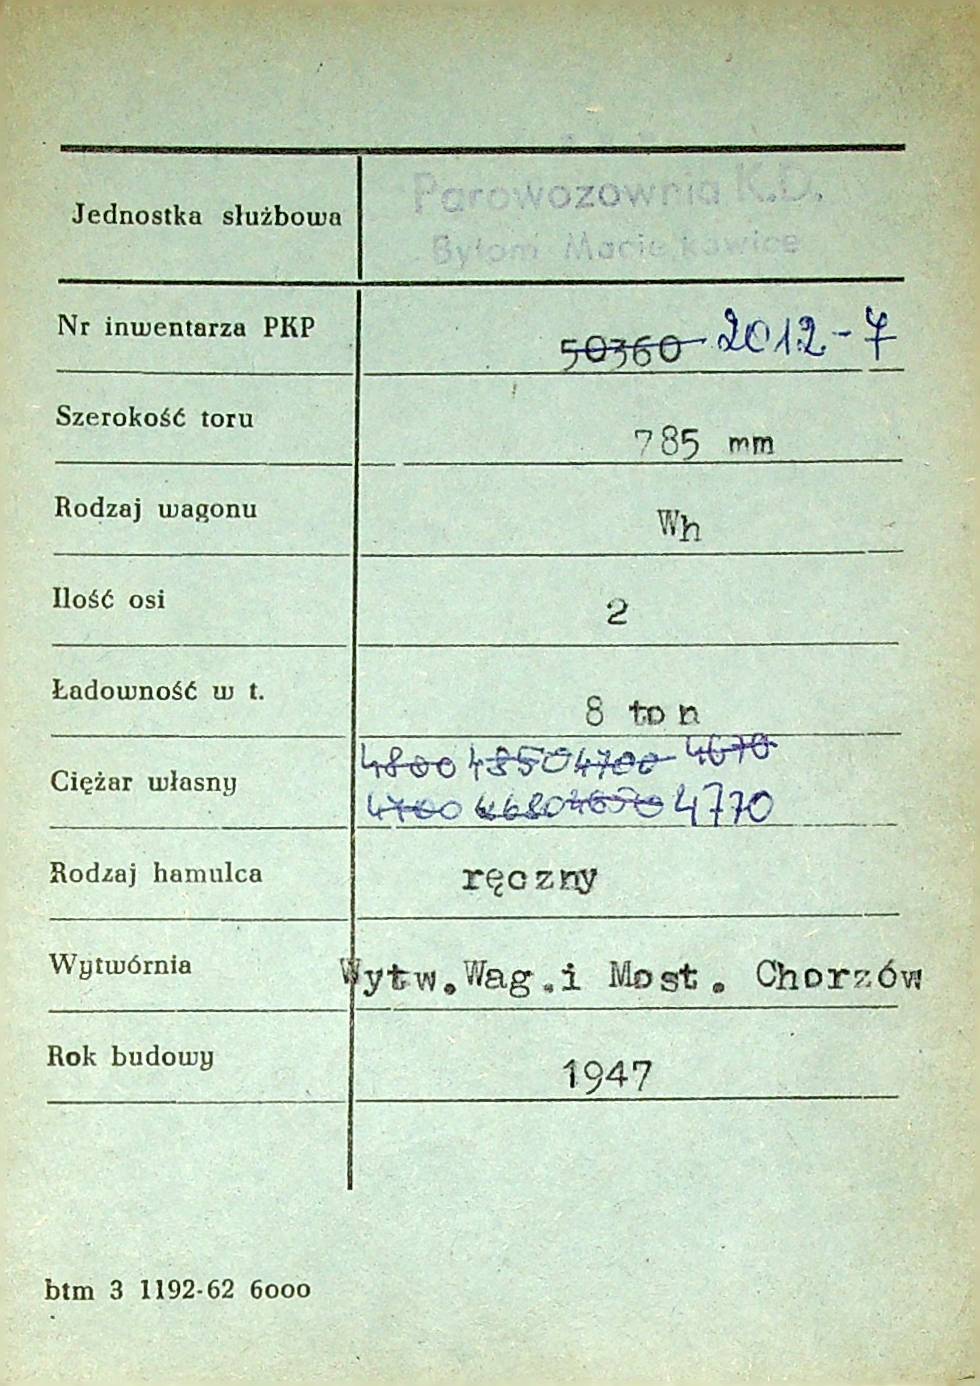 Jednostka służbowa Parowozownia K.D.
Bytom Maciejkowice
Nr inwentarza PKP 50360 2012-7
Szerokość toru 785 mm
Rodzaj wagonu Wh
Ilość osi 2
Ładowność w t. 8 ton
Ciężar własny 4800 4850 4700 4670
4700 4680 4770
Rodzaj hamulca ręczny
Wytwórnia Wytw.Wag.i Most. Chorzów
Rok budowy 1947
btm 3 1192-62 6000